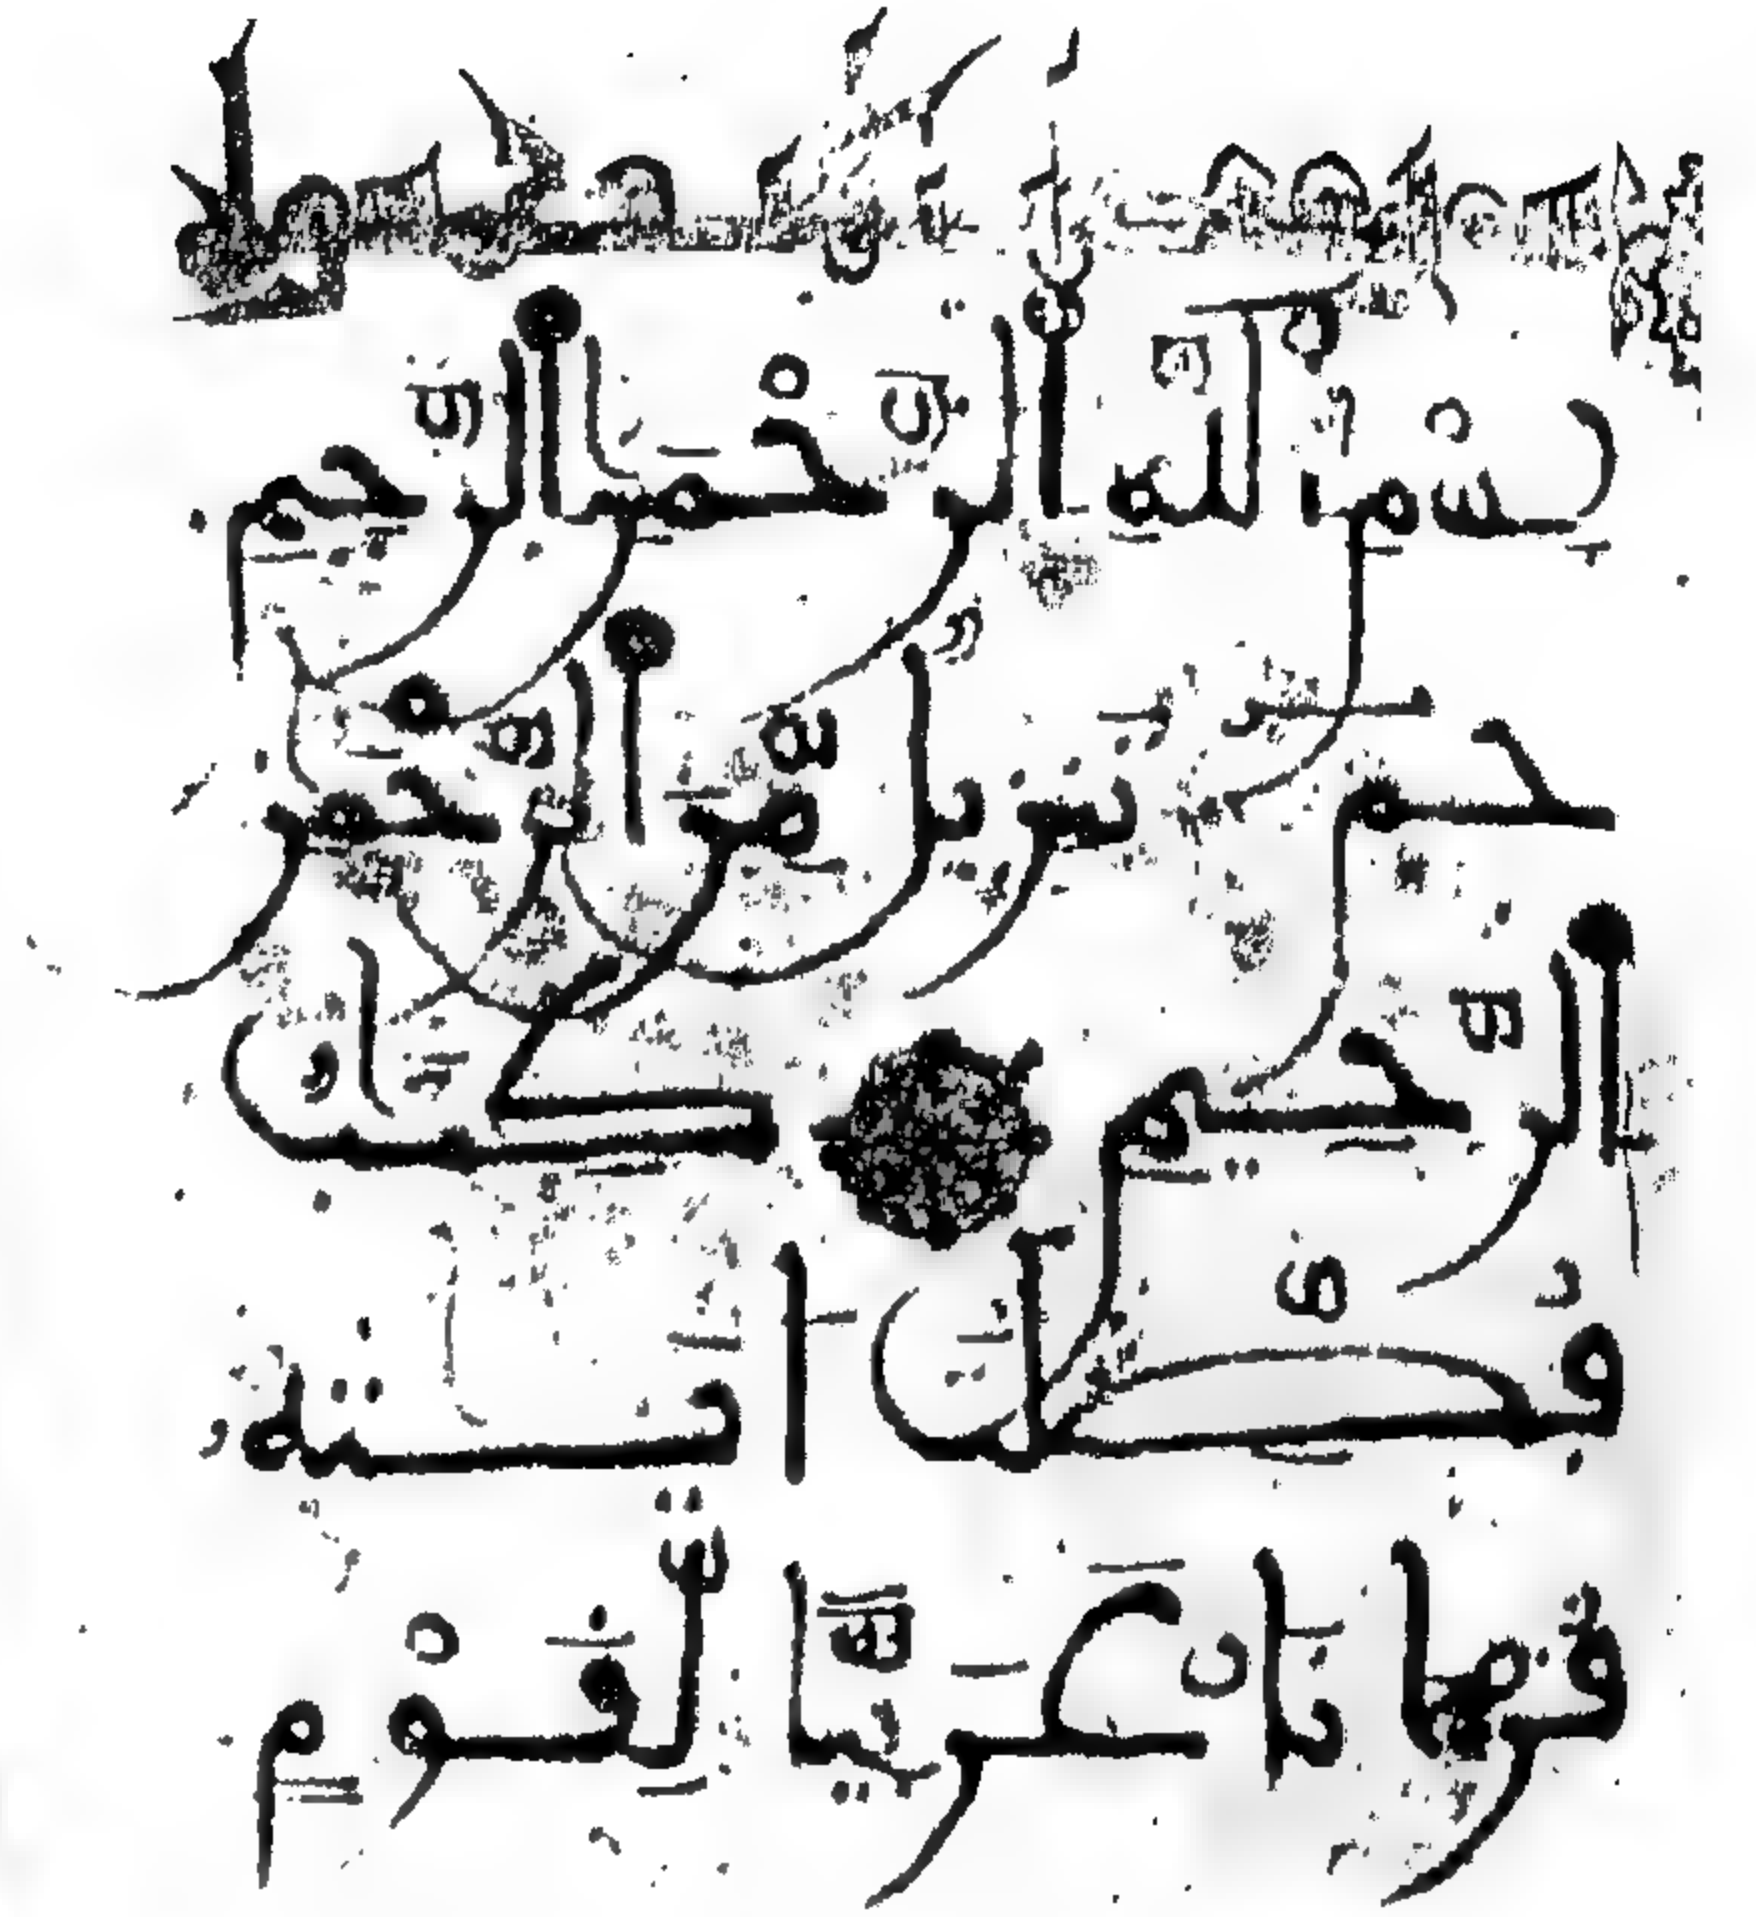 بِسْمِ اللَّهِ الرَّحْمَٰنِ الرَّحِيمِ
حم تَنزِيلٌ مِّنَ الرَّحْمَٰنِ
الرَّحِيمِ كِتَٰبٌ
فُصِّلَتْ ءَايَٰتُهُ
قُرْءَانًا عَرَبِيًّا لِّقَوْمٍ